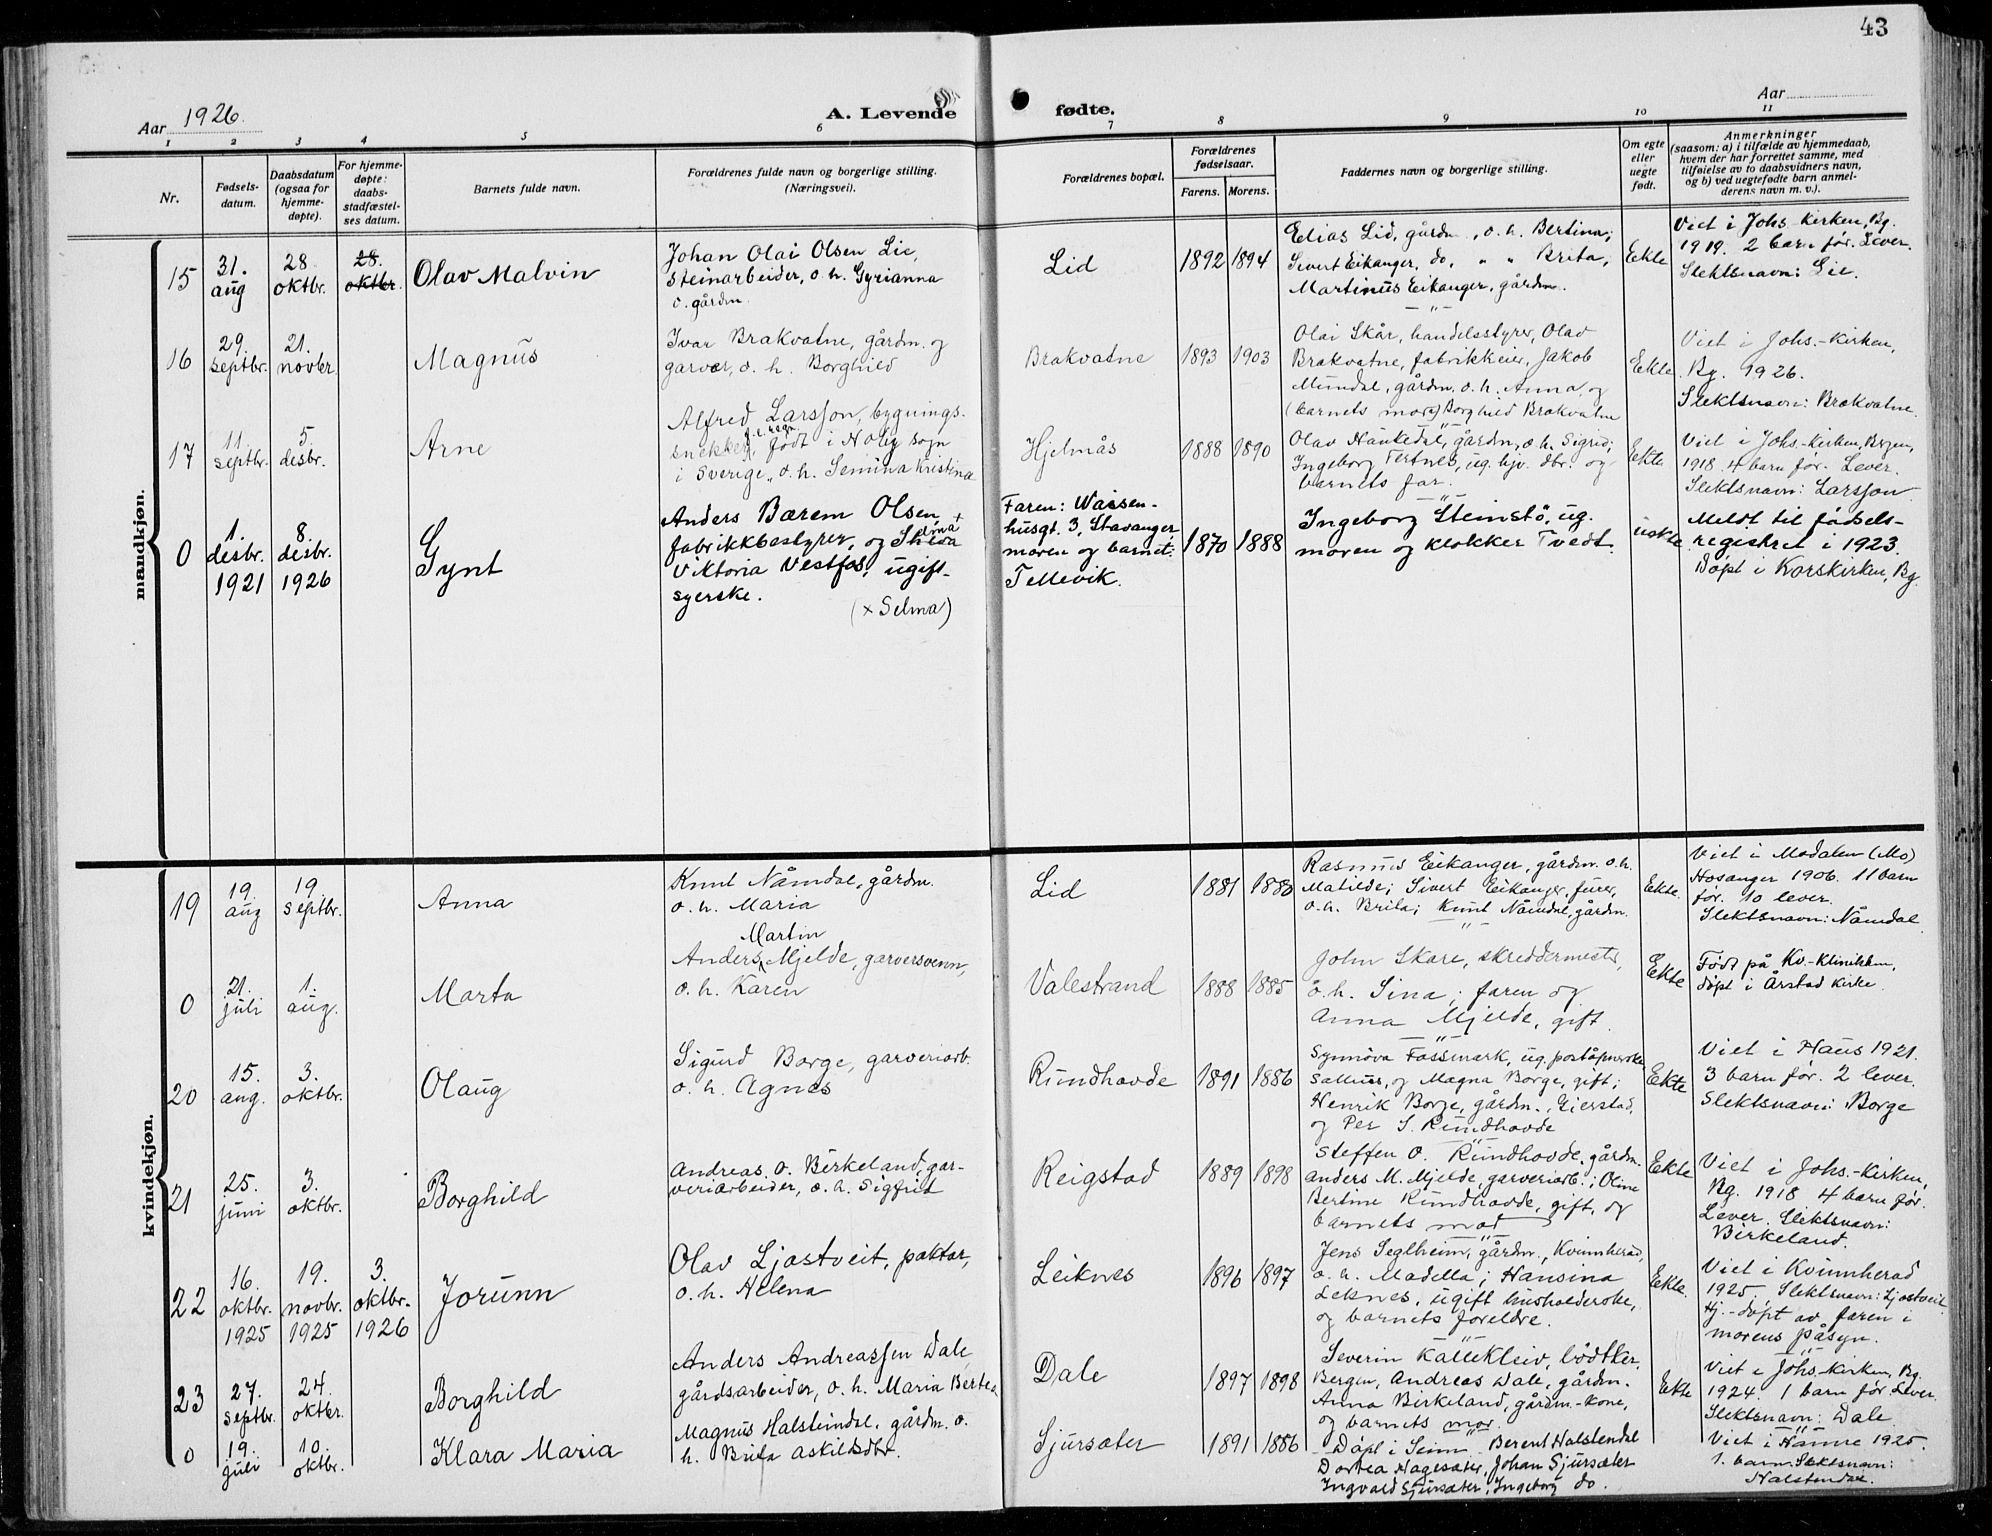 43
Aar 1926.
A. Levende fødte.
Aar
1 2 3 4 5 6 7 8 9 10 11
Nr.
Fødsels-
datum.
Daabsdatum
(ogsaa for
hjemme-
døpte).
For hjemme-
døpte:
daabs-
stadfæstel-
ses datum.
Barnets fulde navn.
Forældrenes fulde navn og borgerlige stilling.
(Næringsvei).
Forældrenes bopæl.
Forældrenes
fødselsaar.
Farens. Morens.
Faddernes navn og borgerlige stilling.
Om egte
eller
uegte
født.
Anmerkninger
(saasom: a) i tilfælde av hjemmedaab,
hvem der har forrettet samme, med
tilføielse av to daabsvidners navn,
og b) ved uegtefødte barn anmel-
derens navn m. v.).
mandkjøn.
15
31.
aug
28
oktbr.
28.
oktbr.
Olav Malvin
Johan Olai Olsen Lie,
Steinarbeider, o. h. Gyrianna
o. gårdm.
Lid
1892 1894
Elias Lid, gårdm., o. h. Bertina;
Sivert Eikanger, do, " " Brita;
Martinus Eikanger, gårdm.
Ekte
Viet i Johs. Kirken, Bg.
1919. 2 barn før. Lever.
Slektsnavn: Lie.
16
29.
septbr.
21.
novbr.
Magnus
Ivar Brakvatne, gårdm. og
garver, o. h. Borghild
Brakvatne
1893 1903
Olai Skår, handelsstyrer, Olav
Brakvatne, fabrikkeier, Jakob
Mundal, gårdm. o. h. Anna, og
(barnets mor) Borghild Brakvatne
Ekte
Viet i Johs.-Kirken,
Bg. 1926.
Slektsnavn: Brakvatne.
17
11.
septbr.
5.
desbr.
Arne
Alfred Larsson, bygnings-
snekker, født i Holy sogn
i Sverige, o. h. Semina Kristina
Hjelmås
1888 1890
Olav Haukedal, gårdm, o. h. Sigrid;
Ingeborg Tertnes, ug. hjv. dbr. og
barnets far.
Ekte
Viet i Johs.-Kirken, Brgen,
1918. 4 barn før. Lever.
Slektsnavn: Larsson.
0
1.
desbr.
1921
8.
desbr.
1926
Gynt
Anders Bærem Olsen
fabrikkbestyrer, og
Viktoria Vestfos, ugift-
syerske.
(x Selma)
Faren: Waisen-
husgt. 3, Stavanger
moren og barnet:
Tellevik.
1870 1888
Ingeborg Steinstö, ug.
moren og klokker Tvedt.
uekte
Meldt til fødsels-
registret i 1923.
Döpt i Korskirken, Bg.
kvindekjøn.
19
19.
aug
19.
septbr.
Anna
Knut Nåmdal, gårdm.
o. h. Maria
Lid
1881 1880
Rasmus Eikanger, gårdm. o. h.
Matilde; Sivert Eikanger, furer,
o. h. Brita; Knut Nåmdal, gårdm.
Ekte.
Viet i Modalen (Mo)
Hosanger 1906. 11 barn
før. 10 lever.
Slektsnavn: Nåmdal.
0
21.
juli
1.
aug.
Marta
Martin
Anders Mjelde, garversvenn,
o. h. Karen
Valestrand
1888 1885
John Skare, skreddermester,
o. h. Sina; faren og
Anna Mjelde, gift.
Ekte
Född på Kv.-klinikken,
döpt i Årstad kirke.
20
15.
aug.
3.
oktbr.
Olaug
Sigurd Borge, garveriarb.
o. h. Agnes
Rundhovde
1891 1886
Synnöva Fossmark, ug. poståpnerske
Saltus, og Magna Borge, gift;
Henrik Borge, gårdm., Gjerstad,
og Per S. Rundhovde
Ekte
Viet i Haus 1921.
3 barn før. 2 lever.
Slektsnavn: Borge
21
25.
juni
3.
oktbr.
Borghild
Andreas O. Birkeland, gar-
veriarbeider, o. h. Sigfrid
Reigstad
1889 1898
Steffen O. Rundhovde, gårdm.
Anders M. Mjelde, garveriarb.; Oline
Bertine Rundhovde, gift, og
barnets mor
Ekte
Viet i Johs.-Kirken,
Bg. 1918 4 barn før.
Lever. Slektsnavn:
Birkeland.
22
16.
oktbr.
1925
19.
novbr.
1925
3.
oktbr.
1926
Jorunn
Olav Ljostveit, paktar,
o. h. Helena
Leiknes
1896 1897
Jens Seglheim, gårdm., Kvinnherad,
o. h. Madella; Hansina
Leknes, ugift husholderske,
og barnets foreldre.
Ekte.
Viet i Kvinnherad
1925. Slektsnavn: Ljostveit.
Hj.-döpt av faren i
morens påsyn.
23
27.
septbr.
24.
oktbr.
Borghild
Anders Andreassen Dale
gårdsarbeider, o. h. Maria Bertea
Dale
1897 1898
Severin Kallekleiv, bödtker,
Bergen, Andreas Dale, gårdm.
Anna Birkeland, gårdm.-kone,
og barnets mor.
Ekte
Viet i Johs.-kirken, Bg.
1924. 1 barn før. Lever.
Slektsnavn: Dale
0
19.
juli
10.
oktbr.
Klara Maria
Magnus Halsteindal, gårdm. o.
h. Brita Askildsdtr.
Sjursæter
1891 1886
Döpt i Seim. Berent Halstendal
Dortea Hagesæter, Johan Sjursæter
Ingvald Sjursæter, Ingeborg do.
Viet i Hamre 1925.
1. barn. Slektsnavn:
Halstendal.